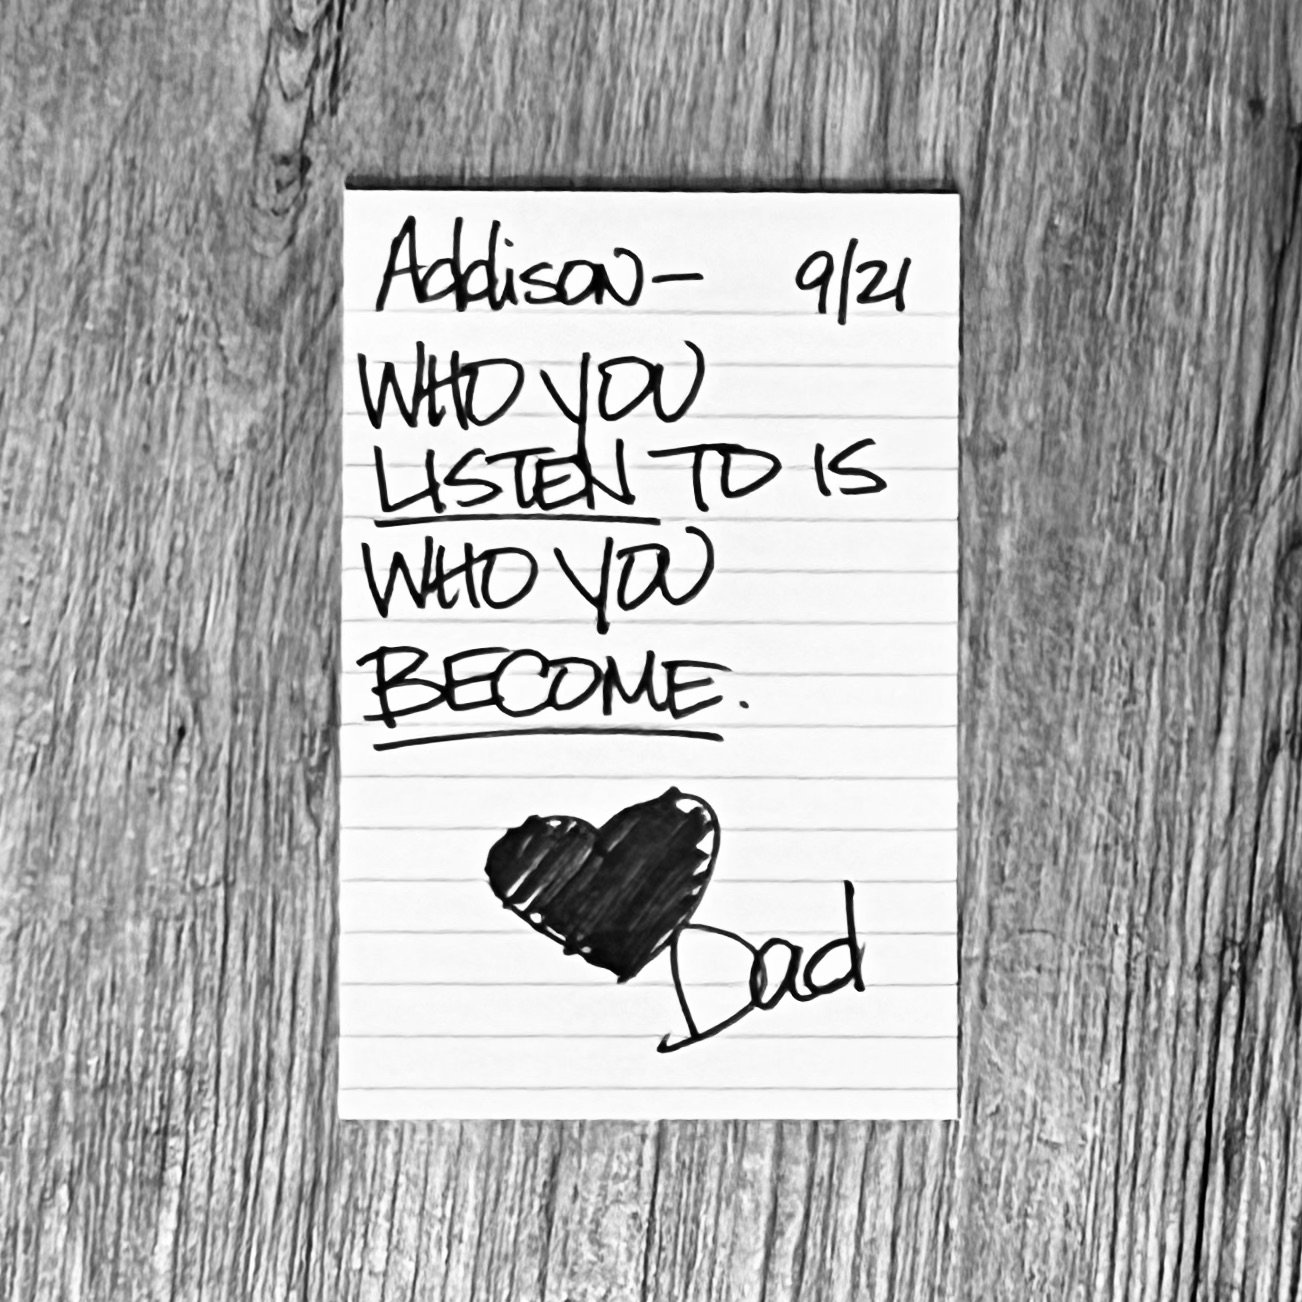 Addison— 9/21
WHO YOU
LISTEN TO IS
WHO YOU
BECOME.
Dad